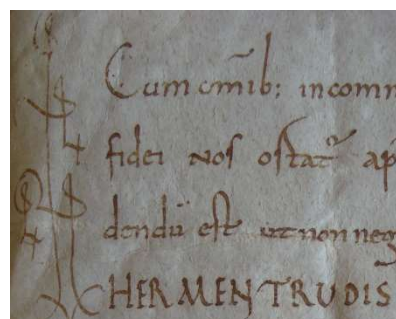 Cum om̅ib; incomm
fidei nos ostat᷒ ap
dendū est ut non neg
HERMENTRUDIS